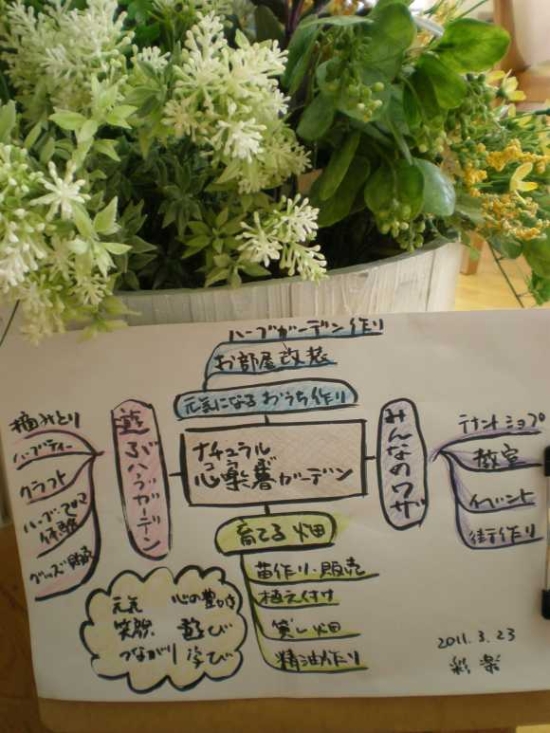 ハーブガーデン作り
お部屋改装
元気になるおうち作り
ナチュラル
心楽書ガーデン
遊ぶハーブガーデン
摘みとり
ハーブティー
クラフト
ハーブ・アロマ
体験
グッズ販売
みんなのワザ
テナントショップ
教室
イベント
街作り
育てる畑
苗作り・販売
植え付け
貸し畑
精油作り
元気 心の豊かさ
笑顔 遊び
つながり 学び
2011.3.23
彩楽